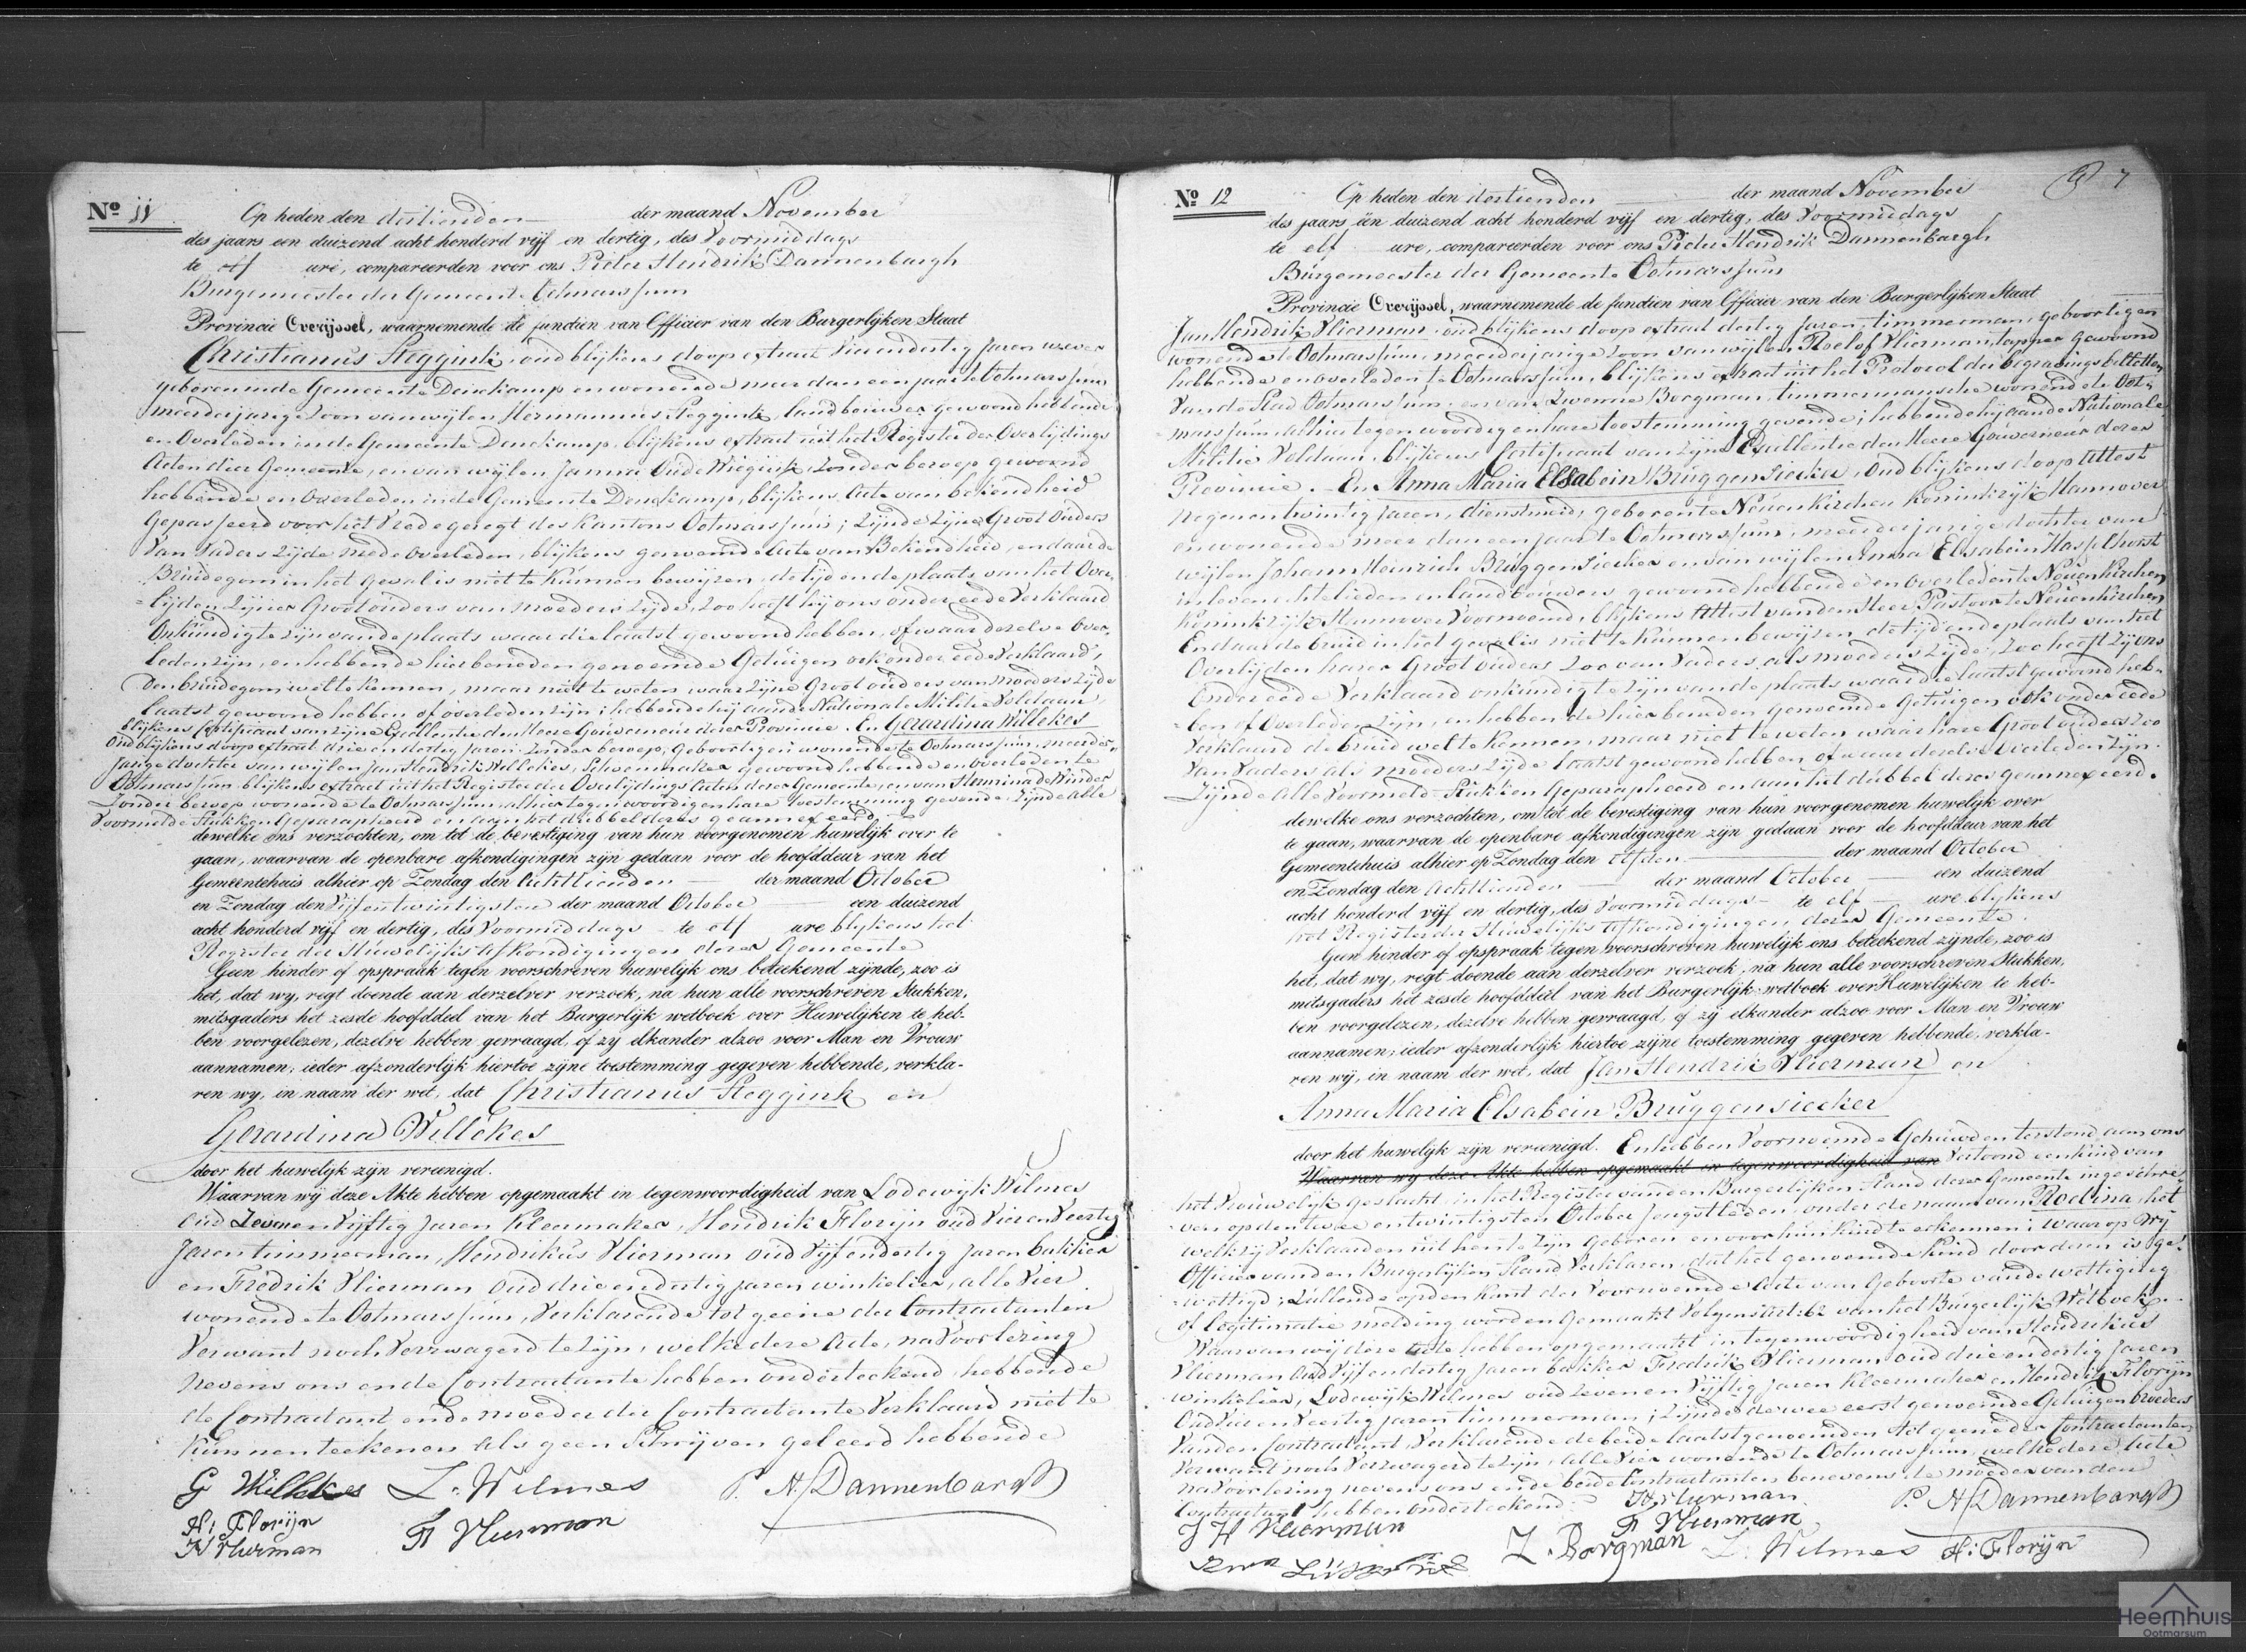 Nº 11
Op heden den dertienden der maand November
des jaars een duizend acht honderd vijf en dertig, des Voormiddags
te elf ure, compareerden voor ons Pieter Hendrik Dannenbargh
Burgemeester der Gemeente Ootmarssum
Provincie Overijssel, waarnemende de functien van Officier van den Burgerlijken Staat
Christianus Steggink, oud blijkens doop extract Vierendertig Jaren wever
geboren in de Gemeente Denekamp en wonende meer dan een jaar te Ootmarssum
meerderjarige Zoon van wijlen Hermannus Steggink, landbouwer gewoond hebbende
en Overleden in de Gemeente Denekamp, blijkens extract uit het Register der Overlijdings
Acten dier Gemeente, en van wijlen Janna Oude Wiegink, Zonder beroep gewoond
hebbende en Overleden in de Gemeente Denekamp, blijkens Acte van bekendheid
Gepasseerd voor het Vredegeregt des Kantons Ootmarssum; Zijnde Zijne Groot Ouders
Van Vaders Zijde mede Overleden, blijkens genoemde Acte van Bekendheid, en daar de
Bruidegom in het geval is niet te kunnen bewijzen, de tijd en de plaats van het Over-
lijden Zijner Grootouders van moeders Zijde, Zoo heeft hij ons onder eede Verklaard
Onkundig te zijn van de plaats waar die laatst gewoond hebben, of waar dezelve Over-
leden zijn, en hebbende hier beneden genoemde Getuigen ook onder eede Verklaard,
Den bruidegom wel te kennen, maar niet te weten waar Zijne Groot ouders van moeders Zijde
laatst gewoond hebben of overleden zijn; hebbende hij aan de Nationale Militie Voldaan,
blijkens Certificaat van Zijne Excellentie den Heere Gouverneur dezer Provincie. En Gerardina Willekes
Oud blijkens doop extract drie en dertig Jaren, Zonder beroep, Geboortig en wonende te Ootmarssum, meerder-
jarige dochter van wijlen Jan Hendrik Willekes, Schoenmaker gewoond hebbende en overleden te
Ootmarssum blijkens extract uit het Register der Overlijdings Acten dezer Gemeente, en van Hermina de Winder
Zonder beroep wonende te Ootmarssum, alhier tegenwoordig en hare toestemming gevende, Zijnde Alle
Voormelde Stukken Geparapheerd en aan het dubbel dezes geannexeerd,
dewelke ons verzochten, om tot de bevestiging van hun voorgenomen huwelijk over te
gaan, waarvan de openbare afkondigingen zijn gedaan voor de hoofddeur van het
Gemeentehuis alhier op Zondag den Achttienden der maand October
en Zondag den Vijfentwintigsten der maand October een duizend
acht honderd vijf en dertig, des Voormiddags te elf ure blijkens het
Register der Huwelijks Afkondigingen dezer Gemeente
Geen hinder of opspraak tegen voorschreven huwelijk ons beteekend zijnde, zoo is
het, dat wy, regt doende aan derzelver verzoek, na hun alle voorschreven Stukken,
mitsgaders het zesde hoofddeel van het Burgerlijk wetboek over Huwelijken te heb-
ben voorgelezen, dezelve hebben gevraagd, of zy elkander alzoo voor Man en Vrouw
aannamen; ieder afzonderlijk hiertoe zijne toestemming gegeven hebbende, verkla-
ren wy, in naam der wet, dat Christianus Steggink en
Gerardina Willekes
door het huwelijk zijn vereenigd.
Waarvan wij deze Akte hebben opgemaakt in tegenwoordigheid van Lodewijk Wilmes
Oud Zevenen Vijftig Jaren Kleermaker, Hendrik Florijn oud Vier en Veertig
Jaren timmerman, Hendrikus Vlierman oud Vijfendertig Jaren bakker
en Fredrik Vlierman oud drieendertig jaren winkelier, alle Vier
wonende te Ootmarssum, Verklarende tot geene der Contractanten
Verwant noch Verzwagerd te Zijn, welke deze Acte, na Voorlezing
nevens ons en de Contractante hebben onderteekend, hebbende
de Contractant en de moeder der Contractante Verklaard niet te
Kunnen teekenen als geen Schrijven geleerd hebbende
G Willekes L. Wilmes P. H. Dannenbargh
H: Florijn
H Vlierman F Vlierman
Nº 12 7
Op heden den dertienden der maand November
des jaars één duizend acht honderd vijf en dertig, des Voormiddags
te elf ure, compareerden voor ons Pieter Hendrik Dannenbargh
Burgemeester der Gemeente Ootmarssum
Provincie Overijssel, waarnemende de functien van Officier van den Burgerlijken Staat
Jan Hendrik Vlierman, oud blijkens doop extract dertig Jaren, timmerman, geboortig en
wonende te Ootmarssum, meerderjarige Zoon van wijlen Roelof Vlierman, tapper gewoond
hebbende en overleden te Ootmarssum, blijkens extract uit het Protocol der begravings billetten
Van de Stad Ootmarssum, en van Zwenne Borgman, timmermansche wonende te Oot-
marssum alhier tegenwoordig en hare toestemming gevende; hebbende hij aan de Nationale
Militie Voldaan, blijkens Certificaat van Zijne Excellentie den Heere Gouverneur dezer
Provincie. En Anna Maria Elsabein Bruggensiecker, Oud blijkens doop Attest
Negenentwintig Jaren, dienstmeid, geboren te Neuenkirchen Koninkrijk Hannover
en wonende meer dan een jaar te Ootmarssum, meerderjarige dochter van
wijlen Johann Heinrich Bruggensiecker en van wijlen Anna Elsabein Haspelhorst
in leven echtelieden en landbouwers gewoond hebbende en Overleden te Neuenkirchen
Koninkrijk Hannover Voornoemd, blijkens Attest van den Heer Pastoor te Neuenkirchen
En daar de bruid in het geval is niet te kunnen bewijzen de tijd en de plaats van het
Overlijden harer Groot Ouders Zoo van Vaders als moeders Zijde, Zoo heeft Zij ons
Onder eede Verklaard onkundig te zijn van de plaats waar die laatst gewoond heb-
ben of Overleden zijn, en hebben de hier beneden genoemde Getuigen ook onder eede
Verklaard de bruid wel te kennen, maar niet te weten waar hare Groot ouders Zoo
Van Vaders als moeders Zijde laatst gewoond hebben of waar dezelve Overleden Zijn.
Zijnde alle Voormelde Stukken Geparapheerd en aan het dubbel dezes geannexeerd.
dewelke ons verzochten, om tot de bevestiging van hun voorgenomen huwelijk over
te gaan, waarvan de openbare afkondigingen zijn gedaan voor de hoofddeur van het
Gemeentehuis alhier op Zondag den elfden der maand October
en Zondag den Achttienden der maand October een duizend
acht honderd vijf en dertig, des Voormiddags te elf ure blijkens
het Register der Huwelijks Afkondigingen dezer Gemeente.
Geen hinder of opspraak tegen voorschreven huwelijk ons beteekend zijnde, zoo is
het, dat wy, regt doende aan derzelver verzoek, na hun alle voorschreven Stukken,
mitsgaders het zesde hoofddeel van het Burgerlijk wetboek over Huwelijken te heb-
ben voorgelezen, dezelve hebben gevraagd, of zij elkander alzoo voor Man en Vrouw
aannamen; ieder afzonderlijk hiertoe zijne toestemming gegeven hebbende, verkla-
ren wij, in naam der wet, dat Jan Hendrik Vlierman en
Anna Maria Elsabein Bruggensiecker
door het huwelijk zijn vereenigd. En hebben Voornoemde Gehuwden terstond aan ons
Waarvan wy deze Akte hebben opgemaakt in tegenwoordigheid van Vertoond een kind van
het Vrouwelijk geslacht, in het Register van den Burgerlijken Stand dezer Gemeente ingeschre-
ven op den twee entwintigsten October Jongstleden onder de naam van Roelina, het
welk zij Verklaarden uit hen te Zijn geboren en voor hun kind te erkennen; waarop Wij
Officier van den Burgerlijken Stand Verklaren, dat het genoemde Kind door dezen is ge-
wettigd; Zullende op den kant der Voornoemde Acte van Geboorte van de wettiging
of legitimatie melding worden Gemaakt Volgens Art: 62 van het Burgerlijk Wetboek.
Waarvan wij deze Acte hebben opgemaakt in tegenwoordigheid van Hendrikus
Vlierman Oud Vijfendertig Jaren bakker Fredrik Vlierman oud drie en dertig Jaren
winkelier, Lodewijk Wilmes oud Zevenen Vijftig Jaren Kleermaker en Hendrik Florijn
Oud Vier en Veertig jaren timmerman; Zijnde de twee eerst genoemde Getuigen broeders
Van den Contractant, Verklarende de beide laatstgenoemden tot geene der Contractanten
Verwant noch Verzwagerd te Zijn, alle Vier wonende te Ootmarssum, welke deze Acte
na Voorlezing nevens ons en de beide Contractanten benevens de moeder van den
Contractant hebben onderteekend.
J H Vlierman H Vlierman P. H. Dannenbargh
F Vlierman
Z. Borgman L. Wilmes H: Florijn
Heemhuis
Ootmarsum